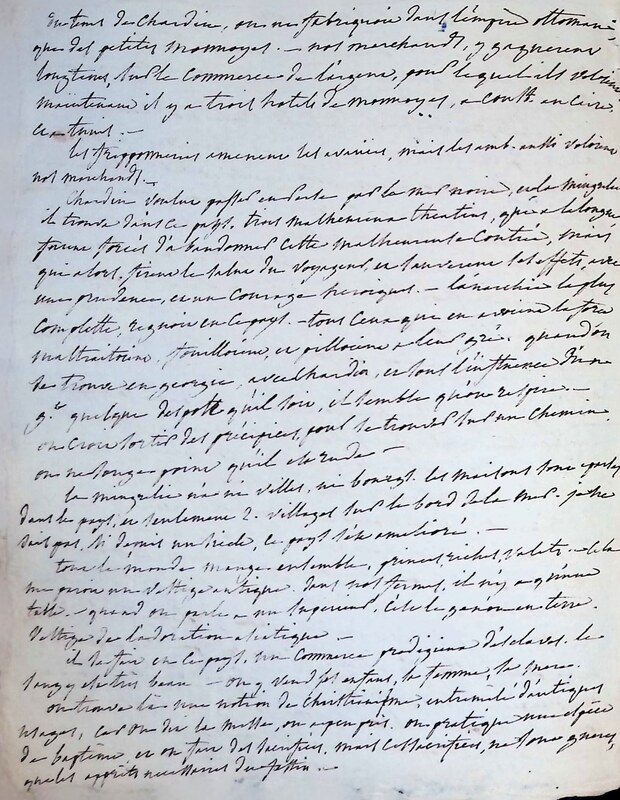 du tems de Chardin, on ne fabriquoit dans l'empire ottoman
que des petites monnoyes. — nos marchands, y gagnerent
longtems, sur le commerce de l'argent, pour lequel ils voloient
maintenant il y a trois hotels de monnoyes, a Constt. au Caire,
et a tunis. —
les fripponneries amenent les avanies, mais les amb. aussi voloient
nos marchands. —
Chardin voulut passer en perse par la mer noire, et la mingrelie
il trouva dans ce pays, trois malheureux theatins, qui a la longue
furent forcés d'abandonner cette malheureuse contrée, mais
qui alors, firent le salut du voyageur, et sauverent ses effets, avec
une prudence, et un courage heroiques. — l'anarchie la plus
complette, regnoit en ce pays. — tous ceux qui en avoient la force
maltraitoient, fouilloient, et pilloient a leur gré. quand on
se trouve en georgie, avec Chardin, et sous l'influence d'un
gr. quelque despote qu'il soit, il semble qu'on respire. —
on croit sortir des précipices, pour se trouver sur un chemin,
on ne songe point qu'il est rude —
la mingrelie n'a ni villes, ni bourgs. les maisons sont eparses
dans le pays, et seulement 2. villages sur le bord de la mer. je ne
sais pas, si depuis un siecle, ce pays s'est amelioré. —
tout le monde mange ensemble, princes, riches, valets. — cela
me paroit un vestige antique. dans nos fermes, il n'y a qu'une
table. — quand on parle a un superieur, c'est le genou en terre.
Vestige de l'adoration asiatique —
il se fait en ce pays, un commerce prodigieux d'esclaves. le
sang y est très beau — on y vend ses enfans, sa femme, sa mere.
on trouve là une notion de christianisme, entremelé d'antiques
usages, car on dit la messe, ou a peu près. on pratique une espèce
de baptême, et on fait des sacrifices, mais ces sacrifices, ne sont gueres,
que les apprêts necessaires du festin. —